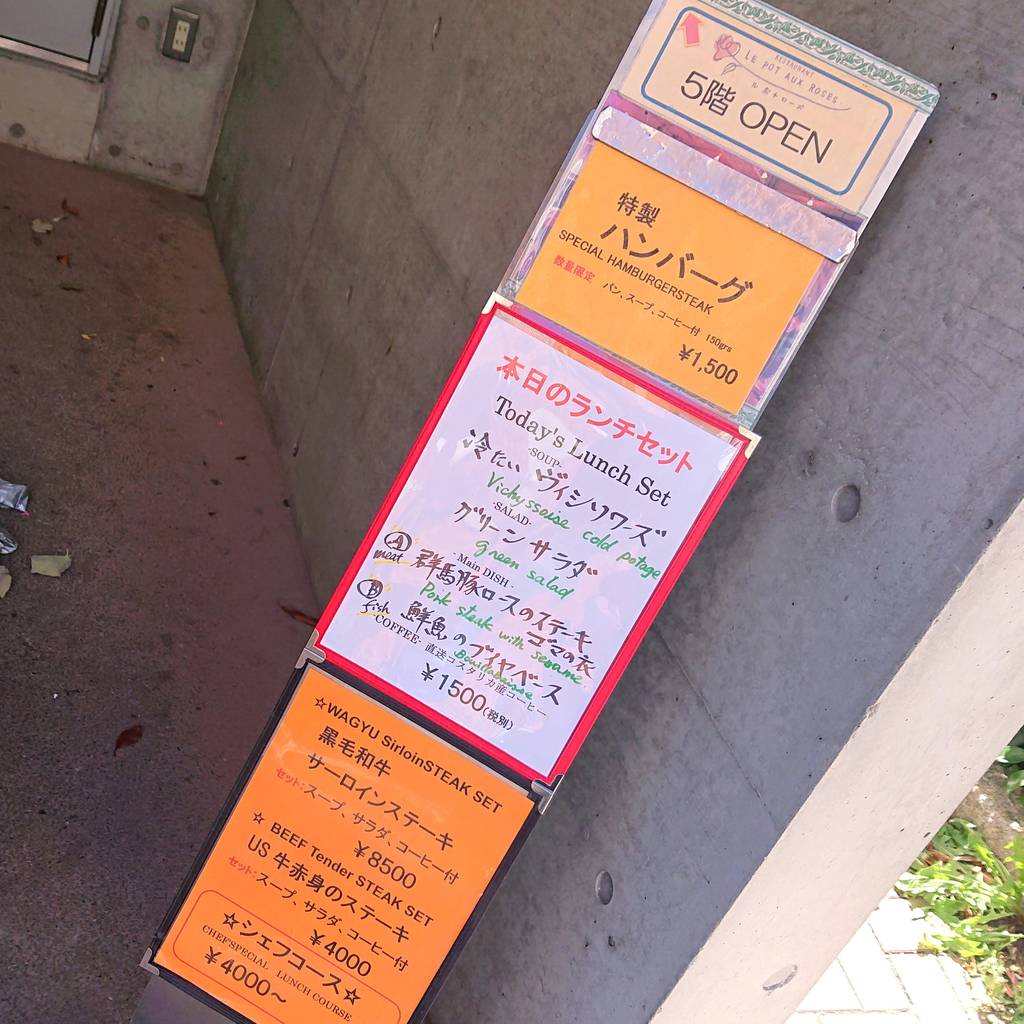 RESTAURANT
LE POT AUX ROSES
ル ポットローズ
5階 OPEN
特製
ハンバーグ
SPECIAL HAMBURGERSTEAK
数量限定 パン、スープ、コーヒー付 150grs
¥1,500
本日のランチセット
Today's Lunch Set
-SOUP-
冷たい ヴィシソワーズ
Vichysseise cold potage
-SALAD-
グリーン サラダ
green salad
-Main DISH-
Ⓐ meat 群馬豚ロースのステーキ
ゴマの衣
Pork steak with sesame
Ⓑ fish 鮮魚のブイヤベース
Bouillabaisse
-COFFEE- 直送コスタリカ産コーヒー
¥1500(税別)
☆WAGYU SirloinSTEAK SET
黒毛和牛
サーロインステーキ
セット:スープ、サラダ、コーヒー付
¥8500
☆ BEEF Tender STEAK SET
US 牛赤身のステーキ
セット:スープ、サラダ、コーヒー付
¥4000
☆シェフコース☆
CHEF'SPECIAL LUNCH COURSE
¥4000~